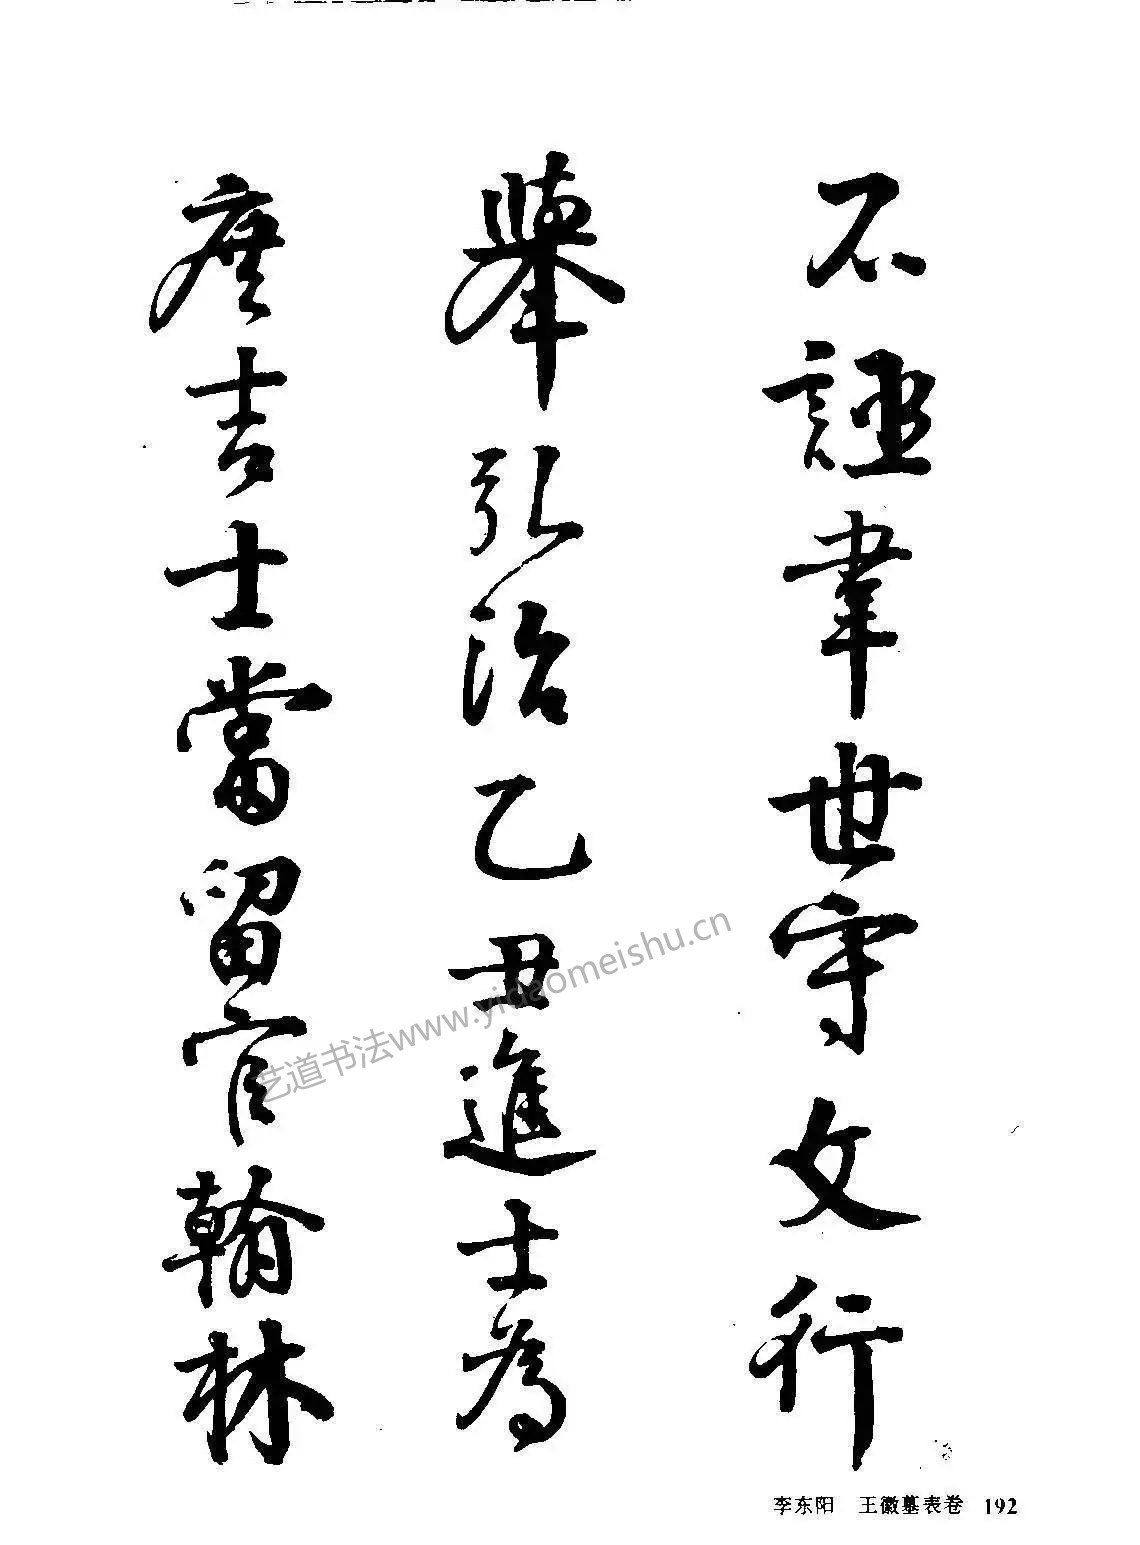 不誣韋世守文行
舉弘治乙丑進士為
庶吉士當留官翰林
艺道书法www.yidaomeishu.cn
李东阳 王徽墓表卷 192